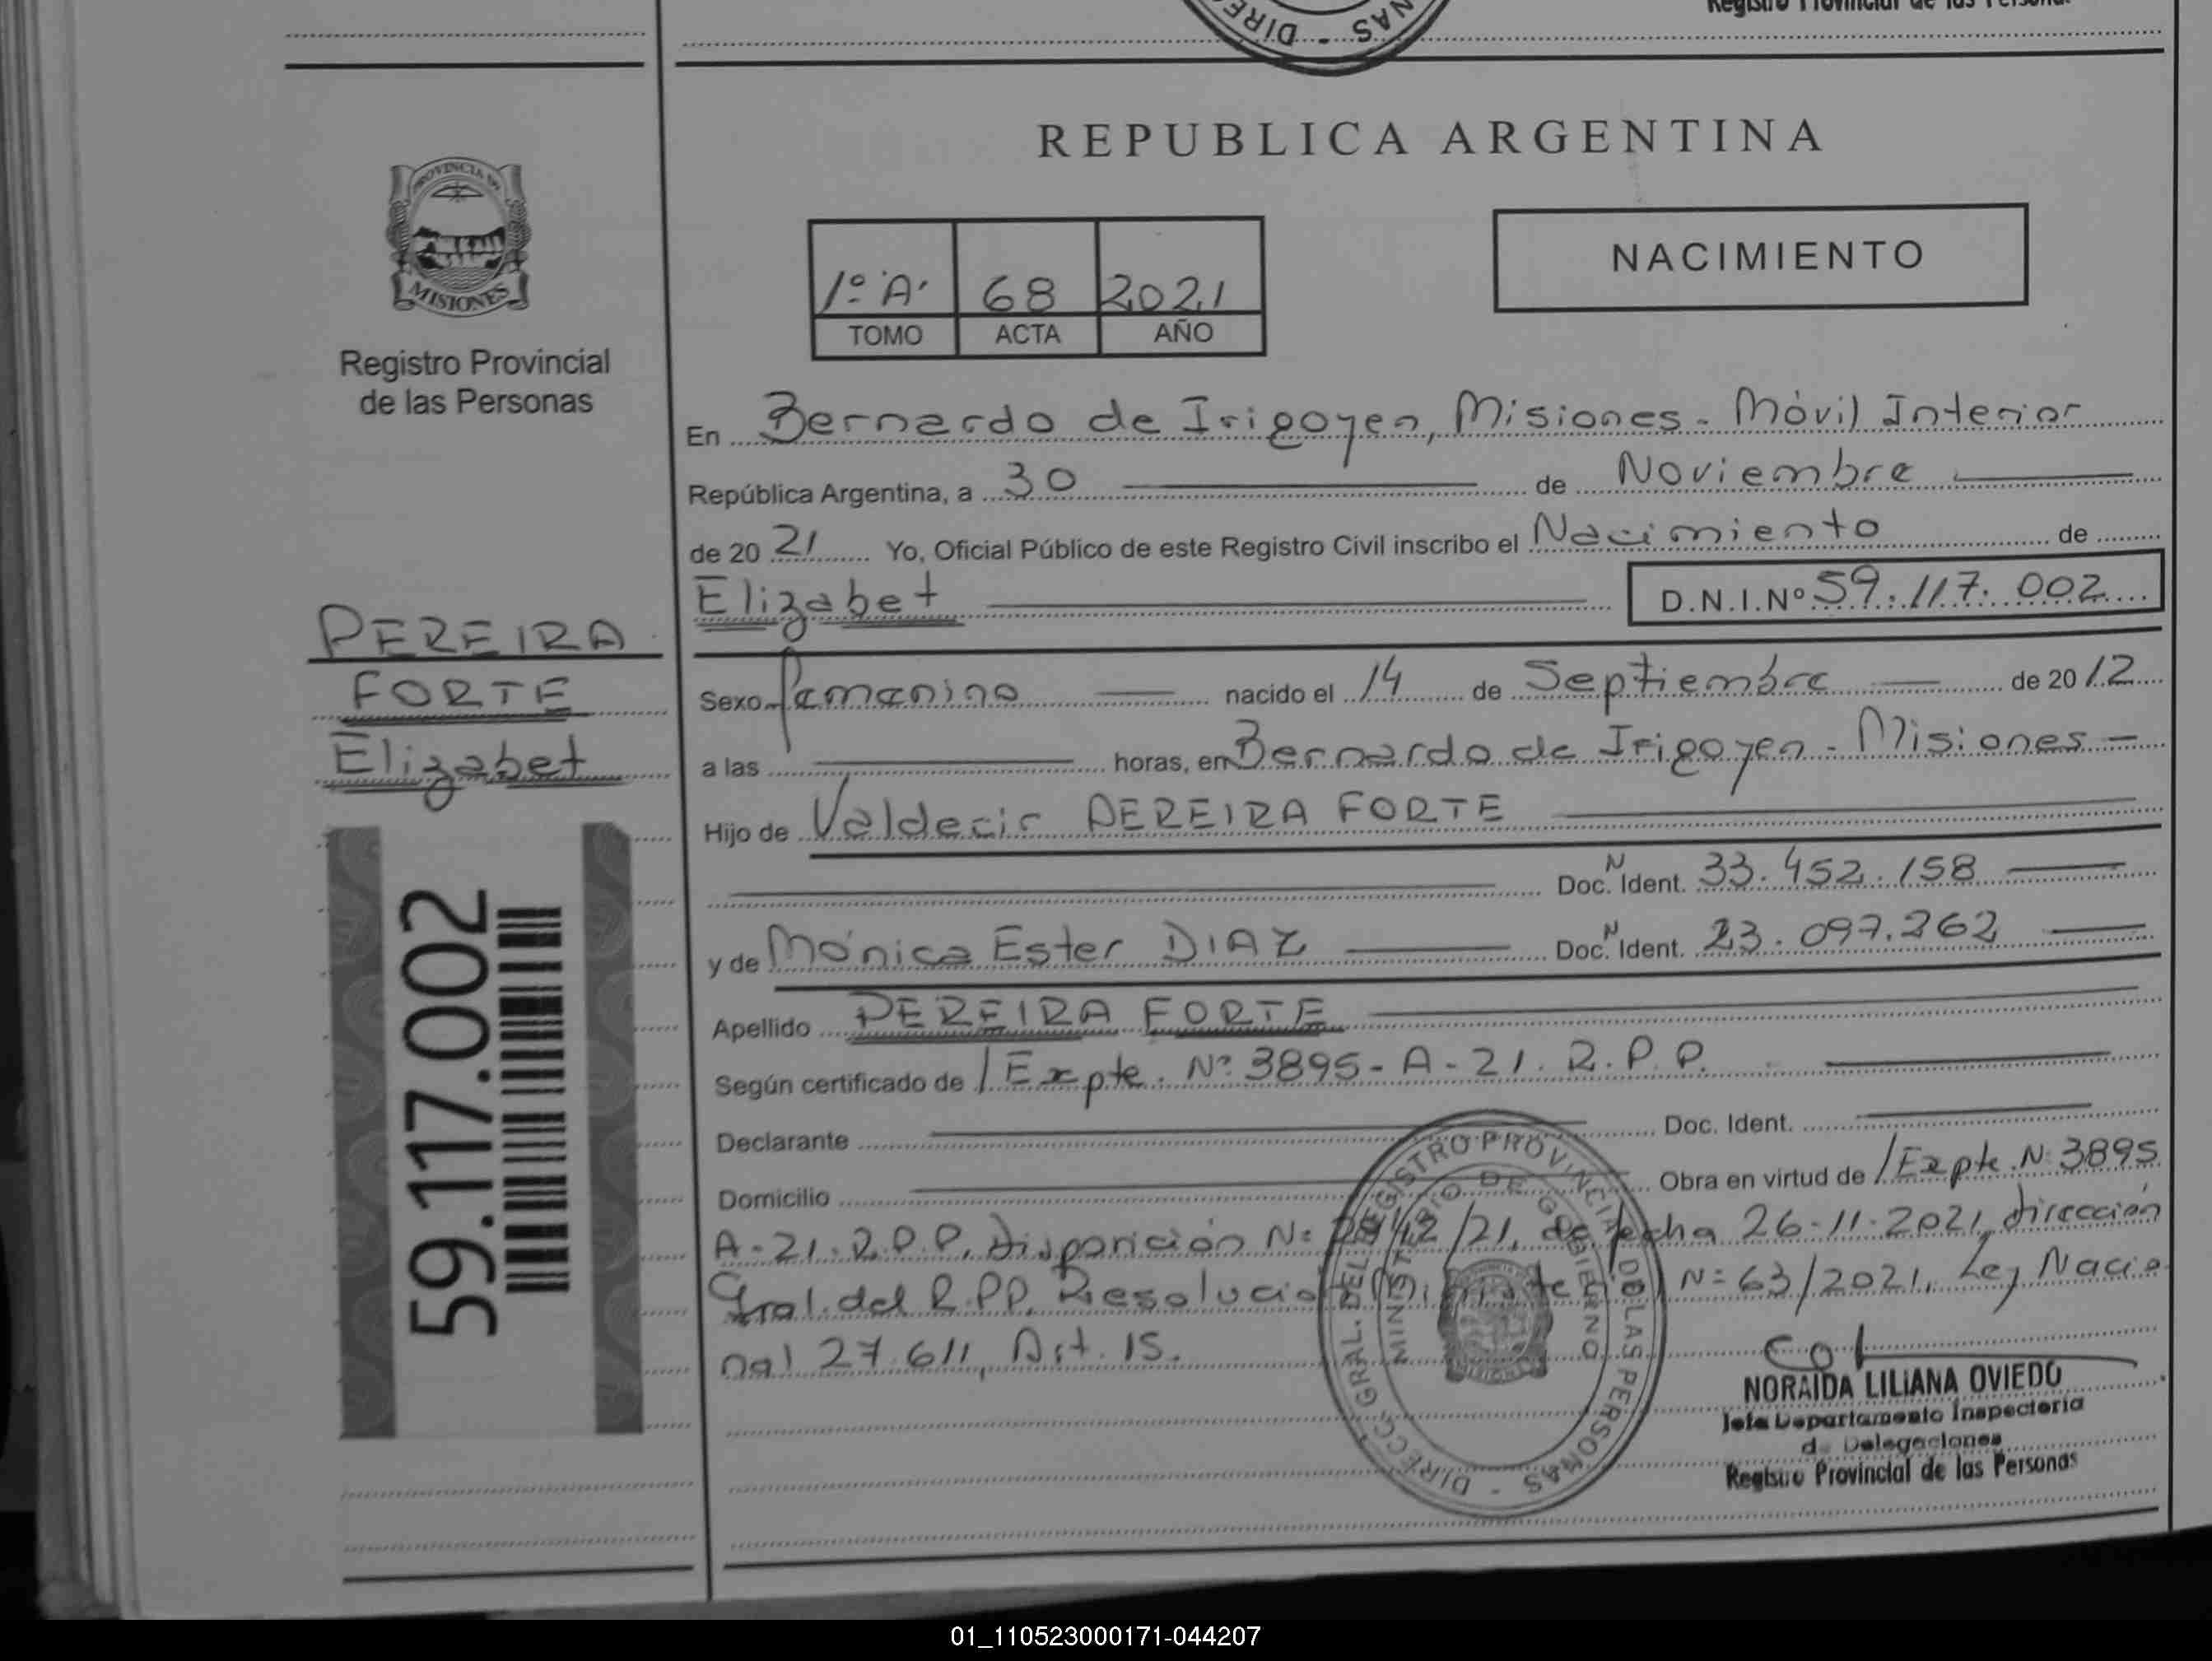 Registro Provincial de las Personas
DIREC - NAS
REPUBLICA ARGENTINA
PROVINCIA DE
MISIONES
Registro Provincial
de las Personas
1º "A" 68 2021
TOMO ACTA AÑO
NACIMIENTO
En Bernardo de Irigoyen, Misiones - Móvil Interior
República Argentina, a 30 de Noviembre
de 20 21 Yo, Oficial Público de este Registro Civil inscribo el Nacimiento de
Elizabet D.N.I.Nº 59.117.002
PEREIRA
FORTE
Elizabet
59.117.002
Sexo femenino nacido el 14 de Septiembre de 20 12
a las horas, en Bernardo de Irigoyen - Misiones -
Hijo de Valdecir PEREIRA FORTE
Doc. N Ident. 33.452.158
y de Mónica Ester DIAZ Doc. N Ident. 23.097.262
Apellido PEREIRA FORTE
Según certificado de /Expte. Nº 3895-A-21. R.P.P.
Declarante Doc. Ident.
Domicilio Obra en virtud de /Expte. N: 3895
A-21.R.P.P. Disposición N: /21, de fecha 26-11-2021, dirección
Gral. del R.P.P. Resolución N=63/2021, Ley Nacio
nal 27.611, Art. 15.
DIRECC. GRAL. DEL REGISTRO PROVINCIAL DE LAS PERSONAS -
MINISTERIO DE GOBIERNO
NORAIDA LILIANA OVIEDO
Jefa Departamento Inspectoría
de Delegaciones
Registro Provincial de las Personas
01_110523000171-044207